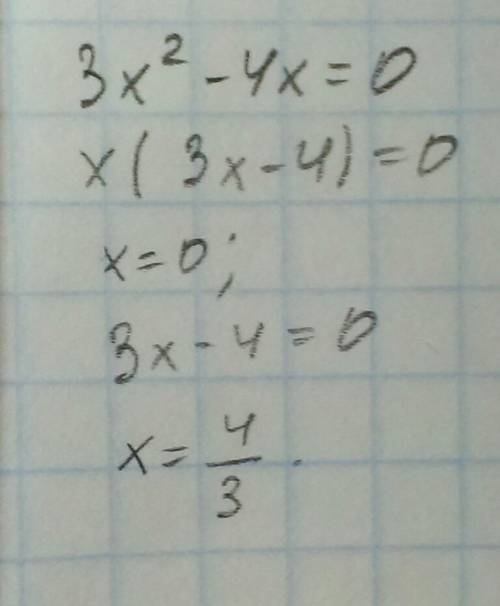 3x² - 4x = 0
x( 3x - 4) = 0
x = 0;
3x - 4 = 0
x = 4/3.